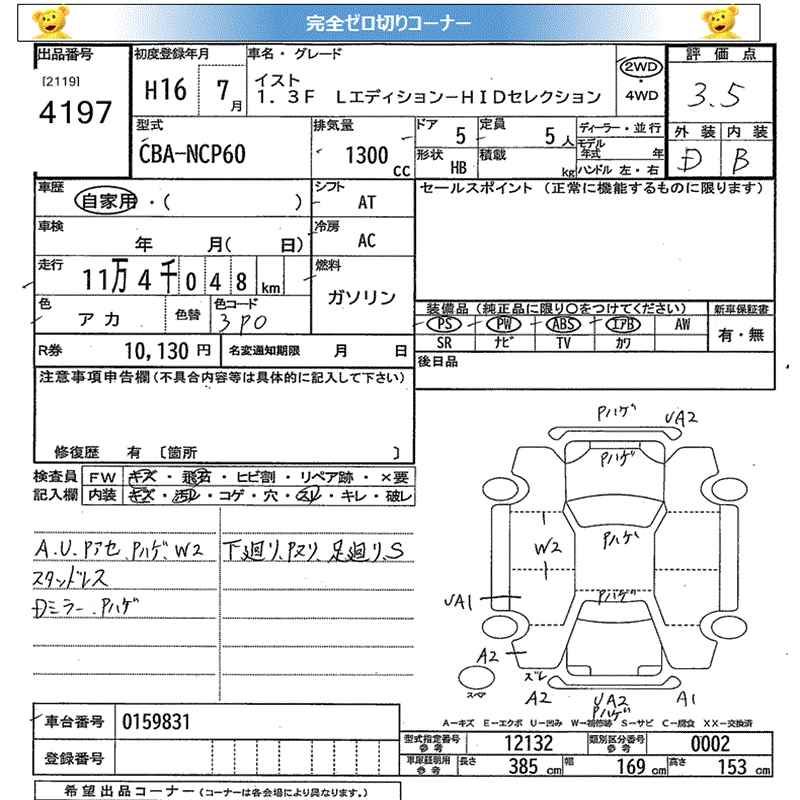 完全ゼロ切りコーナー
出品番号
[2119]
4197
初度登録年月
H16 7月
車名・グレード
イスト
1.3F LエディションーHIDセレクション
2WD
・
4WD
評価点
3.5
外装 内装
D B
型式
CBA-NCP60
排気量
1300 cc
ドア 5
定員 5人
ディーラー・並行
モデル年式 年
形状 HB
積載 kg
ハンドル 左・右
車歴
自家用・( )
シフト
AT
セールスポイント (正常に機能するものに限ります)
車検
年 月( 日)
冷房
AC
走行
11万4千048km
燃料
ガソリン
色
アカ
色替
色コード
3P0
装備品 (純正品に限り○をつけてください)
新車保証書
PS PW ABS エアB AW
有・無
SR ナビ TV カワ
R券 10,130円
名変通知期限 月 日
後日品
注意事項申告欄 (不具合内容等は具体的に記入して下さい)
修復歴 有 〔箇所 〕
検査員記入欄
FW キズ・飛石・ヒビ割・リペア跡・×要
内装 キズ・汚レ・コゲ・穴・スレ・キレ・破レ
A.U.Pアセ.Pハゲ.W2
下廻り.Pヌリ.足廻り.S
スタッドレス
Dミラー.Pハゲ
Pハゲ UA2
Pハゲ
Pハゲ
W2
Pハゲ
UA1
A2
ズレ
スペア
A2
UA2
Pハゲ
A1
A-キズ E-エクボ U-凹み W-補修跡 S-サビ C-腐食 XX-交換済
車台番号 0159831
登録番号
型式指定番号 参考 12132
類別区分番号 参考 0002
車庫証明用 参考 長さ 385cm 幅 169cm 高さ 153cm
希望出品コーナー (コーナーは各会場により異なります。)